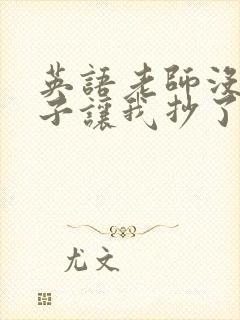 英語老師沒
子讓我抄了
尤文